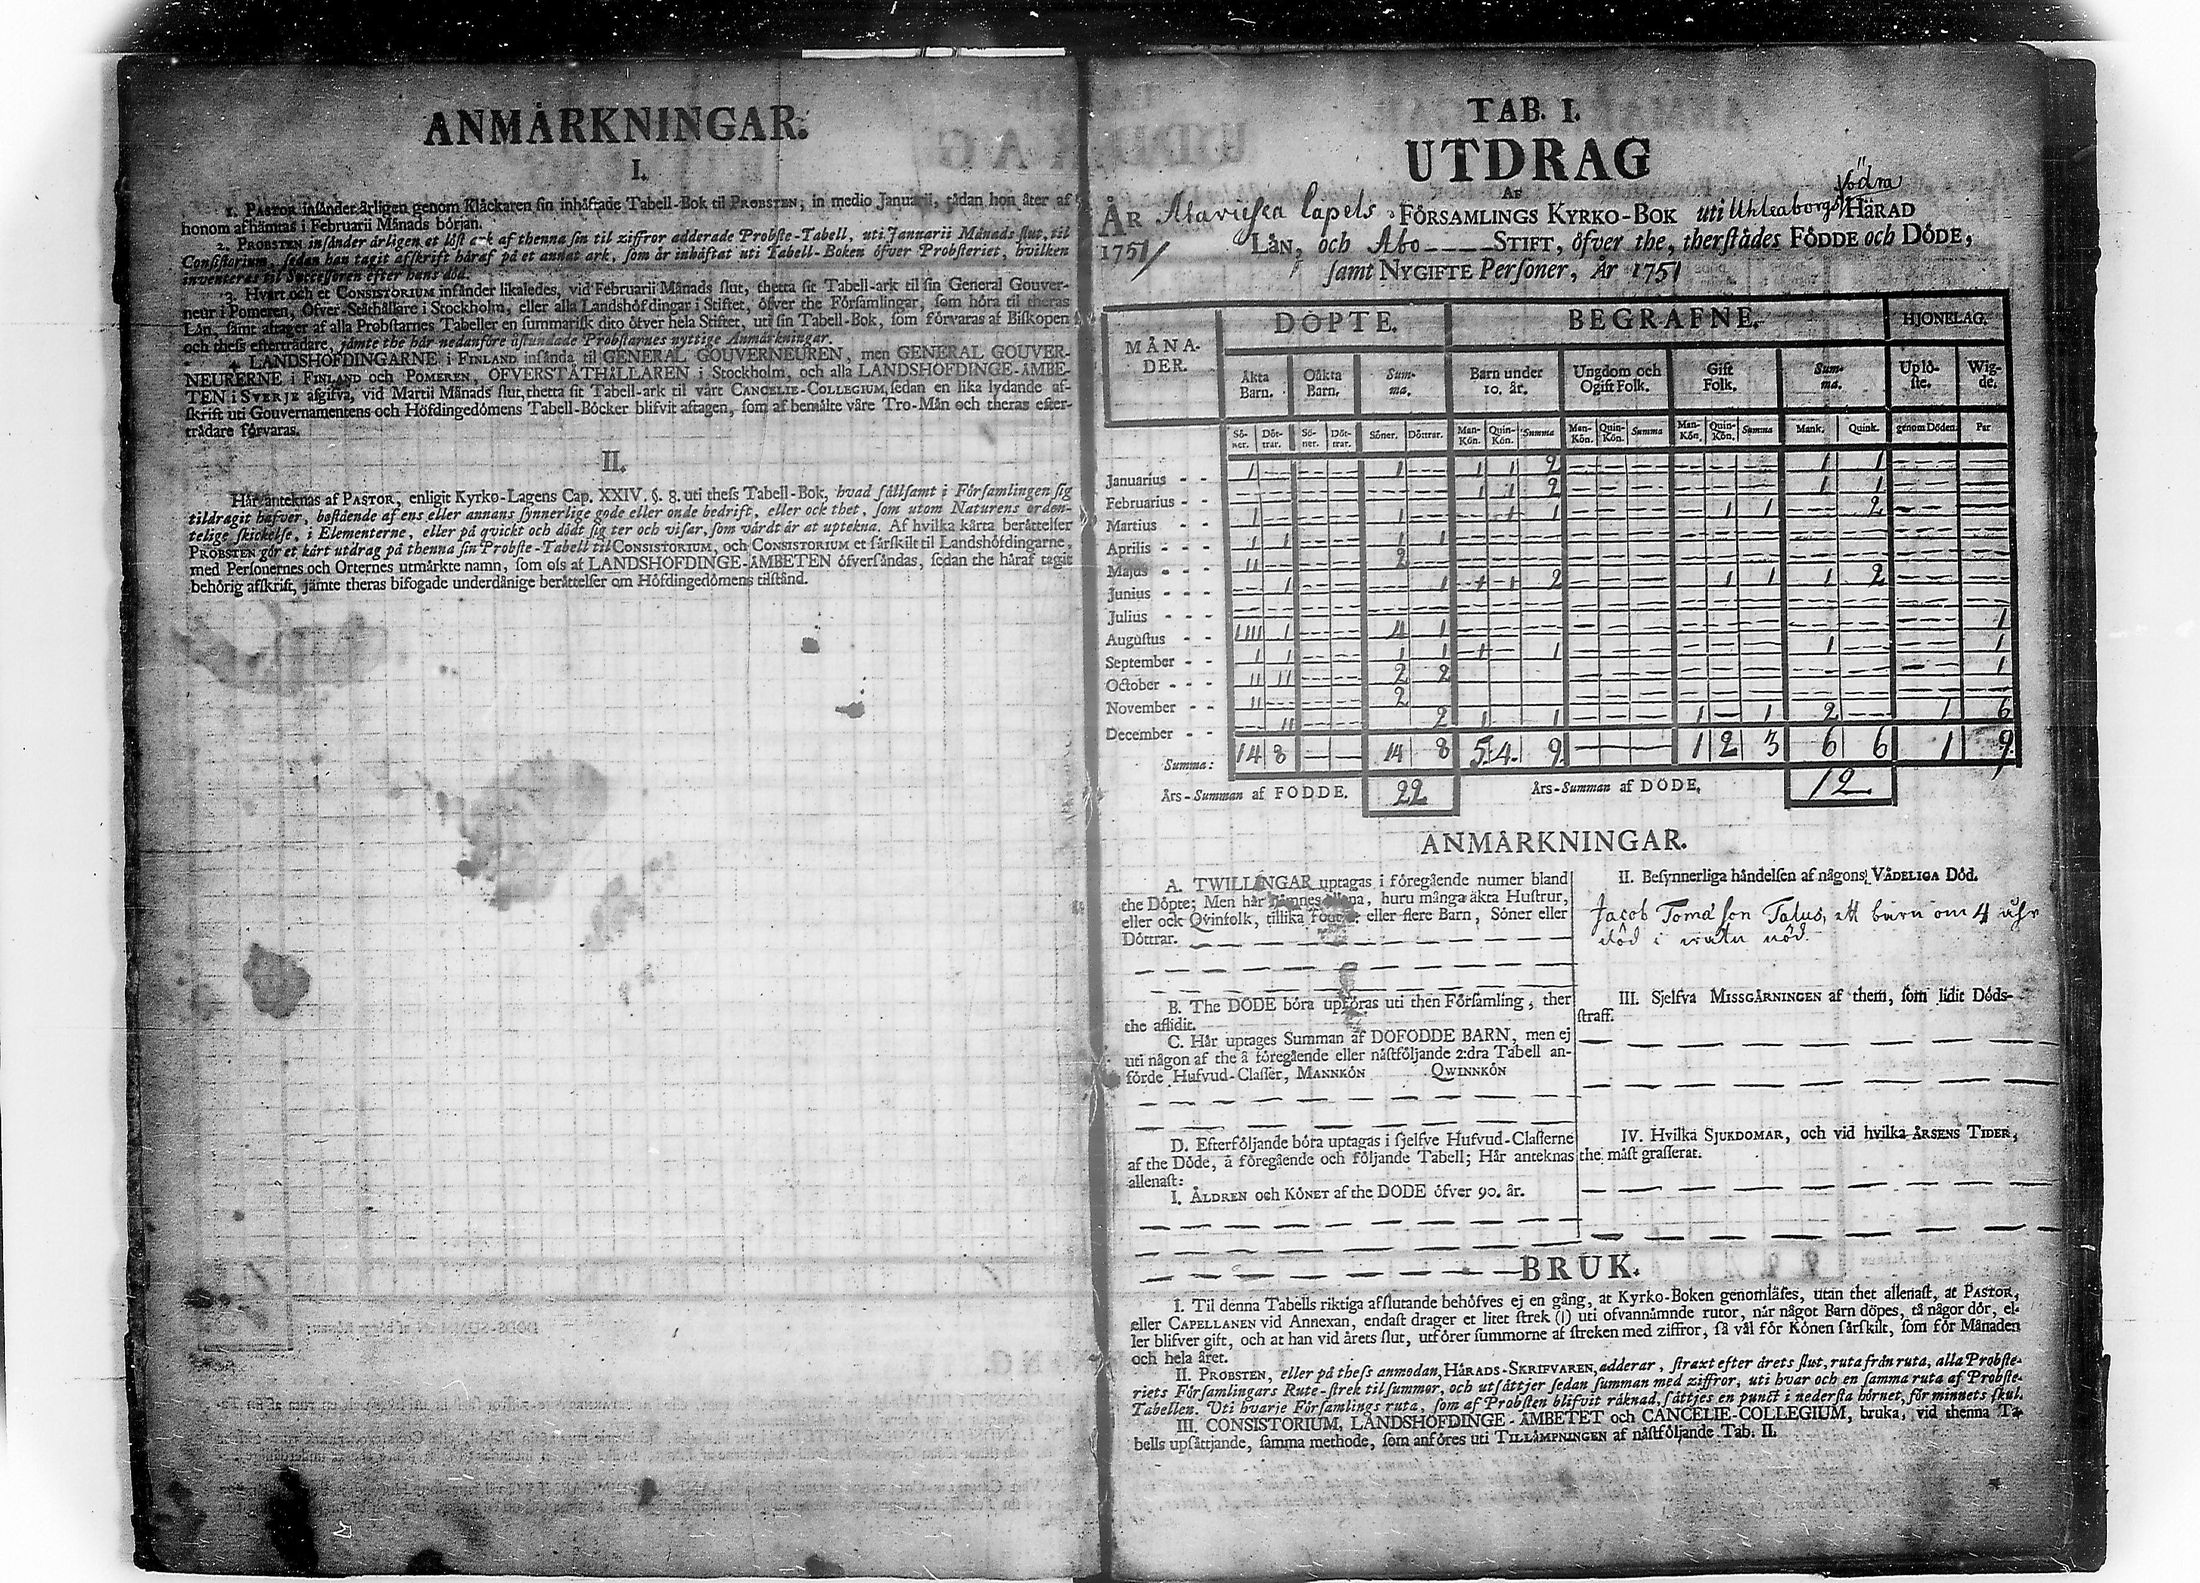 ANMÅRKNINGAR.
I.
1. PASTOR insånder årligen genom Klåckaren sin inhåftade Tabell-Bok til PROBSTEN, in medio Januarii, sådan hon åter af
honom afhåmtas i Februarii Månads början.
2. PROBSTEN insånder årligen et löst ark af thenna sin til ziffror adderade Probste-Tabell, uti Januarii Månads slut, til
Consistorium, sedan han tagit afskrift håraf på et annat ark, som år inhåftat uti Tabell-Boken öfver Probsteriet, hvilken
inventeras til Successoren efter hans död.
3. Hvart och et CONSISTORIUM insånder likaledes, vid Februarii Månads slut, thetta sit Tabell-ark til sin General Gouver-
neur i Pomeren, Öfver-Ståthållare i Stockholm, eller alla Landshöfdingar i Stiftet, öfver the Församlingar, som höra til theras
Lån, samt aftager af alla Probstarnes Tabeller en summarisk dito öfver hela Stiftet, uti sin Tabell-Bok, som förvaras af Biskopen
och thess efterträdare, jåmte the hår nedanföre åstundade Probstarnes nyttige Anmårkningar.
4. LANDSHÖFDINGARNE i FINLAND insånda til GENERAL GOUVERNEUREN, men GENERAL GOUVER-
NEURERNE i FINLAND och POMEREN, ÖFVERSTÅTHÅLLAREN i Stockholm, och alla LANDSHÖFDINGE-ÅMBE-
TEN i SVERJE afgifva, vid Martii Månads slut, thetta sit Tabell-ark til vårt CANCELIE-COLLEGIUM, sedan en lika lydande af-
skrift uti Gouvernamentens och Höfdingedömens Tabell-Böcker blifvit aftagen, som af bemålte våre Tro-Mån och theras efter-
trådare förvaras.
II.
Hår anteknas af PASTOR, enligit Kyrko-Lagens Cap. XXIV. §. 8. uti thess Tabell-Bok, hvad sållsamt i Församlingen sig
tildragit hafver, bestående af ens eller annans synnerlige gode eller onde bedrift, eller ock thet, som utom Naturens orden-
telige skickelse, i Elementerne, eller på qvickt och dödt sig ter och visar, som vårdt år at uptekna. Af hvilka kårta beråttelser
PROBSTEN gör et kårt utdrag på thenna sin Probste-Tabell til CONSISTORIUM, och CONSISTORIUM et sårskilt til Landshöfdingarne,
med Personernes och Orternes utmårkte namn, som oss af LANDSHÖFDINGE-ÅMBETEN öfversåndas, sedan the håraf tagit
behörig afskrift, jåmte theras bifogade underdånige beråttelser om Höfdingedömens tilstånd.
TAB. I.
UTDRAG
AF
ÅR Alavieska Capels FÖRSAMLINGS KYRKO-BOK uti Uhleaborgs Södra HÄRAD
1751 LÅN, och Abo STIFT, öfver the, therstådes FÖDDE och DÖDE,
samt NYGIFTE Personer, År 1751
MÅNA-
DER.
DÖPTE. BEGRAFNE. HJONELAG.
Åkta Barn. Oåkta Barn. Sum-ma. Barn under 10. år. Ungdom och Ogift Folk. Gift Folk. Sum-ma. Uplö-ste. Wig-de.
Sö-ner. Döt-trar. Sö-ner. Döt-trar. Söner. Döttrar. Man-Kön. Quin-Kön. Summa Man-Kön. Quin-Kön. Summa Man-Kön. Quin-Kön. Summa Mank. Quink. genom Döden. Par
Januarius - - 1 1 1 1 2 1 1
Februarius - - 1 1 2 1 1
Martius - - 1 1 1 1 1 1 2
Aprilis - - 1 1 1 1
Majus - - 11 2
Junius - - 1 1 1 1 2 1 1 1 2
Julius - -
Augustus - - 1111 1 4 1 1
September - - 1 1 1 1 1 1 1 1
October - - - 11 11 2 2 1
November - - 11 2
December - - 11 2 1 1 1 1 2 1 6
Summa: 14 8 14 8 5 4 9 1 2 3 6 6 1 9
Års-Summan af FÖDDE. 22 Års-Summan af DÖDE. 12
ANMÅRKNINGAR.
A. TWILLINGAR uptagas i föregående numer bland
the Döpte; Men hår nåmnes allena, huru många åkta Hustrur,
eller ock Qvinfolk, tillika födt 2. eller flere Barn, Söner eller
Döttrar.
B. The DÖDE böra upföras uti then Församling, ther
the aflidit.
C. Hår uptages Summan af DÖFÖDDE BARN, men ej
uti någon af the å föregående eller nåstföljande 2:dra Tabell an-
förde Hufvud-Classer, MANNKÖN QWINNKÖN
D. Efterföljande böra uptagas i sjelfve Hufvud-Classerne
af the Döde, å föregående och följande Tabell; Hår anteknas
allenast:
I. ÅLDREN och KÖNET af the DÖDE öfver 90. år.
II. Besynnerliga håndelsen af någons VÅDELIGA DÖD.
Jacob Tomasson Talus, ett barn om 4 åhr
död i watu nöd.
III. Sjelfva MISSGÅRNINGEN af them, som lidit Döds-
straff.
IV. Hvilka SJUKDOMAR, och vid hvilka ÅRSENS TIDER,
the måst grasserat.
BRUK.
I. Til denna Tabells riktiga afslutande behöfves ej en gång, at Kyrko-Boken genomlåses, utan thet allenast, at PASTOR,
eller CAPELLANEN vid Annexan, endast drager et litet strek (|) uti ofvannåmnde rutor, når något Barn döpes, tå någor dör, el-
ler blifver gift, och at han vid årets slut, utförer summorne af streken med ziffror, så vål för Könen sårskilt, som för Månaden
och hela året.
II. PROBSTEN, eller på thess anmodan, HÅRADS-SKRIFVAREN, adderar, straxt efter årets slut, ruta från ruta, alla Probste-
riets Församlingars Rute-strek til summor, och utsåttjer sedan summan med ziffror, uti hvar och en samma ruta af Probste-
Tabellen. Uti hvarje Församlings ruta, som af Probsten blifvit råknad, såttjes en punct i nedersta hörnet, för minnets skul.
III. CONSISTORIUM, LANDSHÖFDINGE-ÅMBETET och CANCELIE-COLLEGIUM, bruka, vid thenna Ta-
bells upsåttjande, samma methode, som anföres uti TILLÅMPNINGEN af nåstföljande Tab. II.